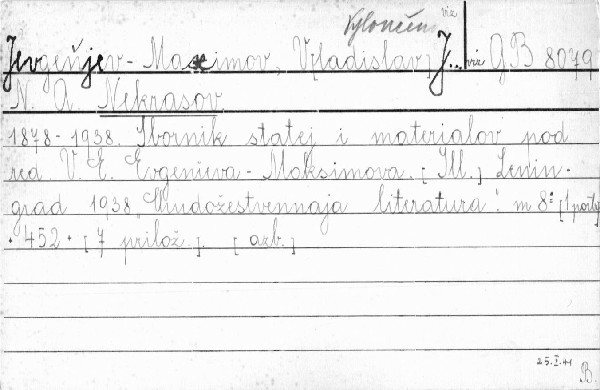 Vyloučeno viz
Jevgeňjev-Maximov, V[ladislav] J... viz GB 8079
N. A. Nekrasov
1878-1938. Sbornik statej i materialov pod
red V. E. Evgenieva-Maksimova. [Ill.] Lenin-
grad 1938 "Chudožestvennaja literatura". m 8° [1 portr]
· 452 · [7 prilož.]. [azb.]
25.I.41
B.